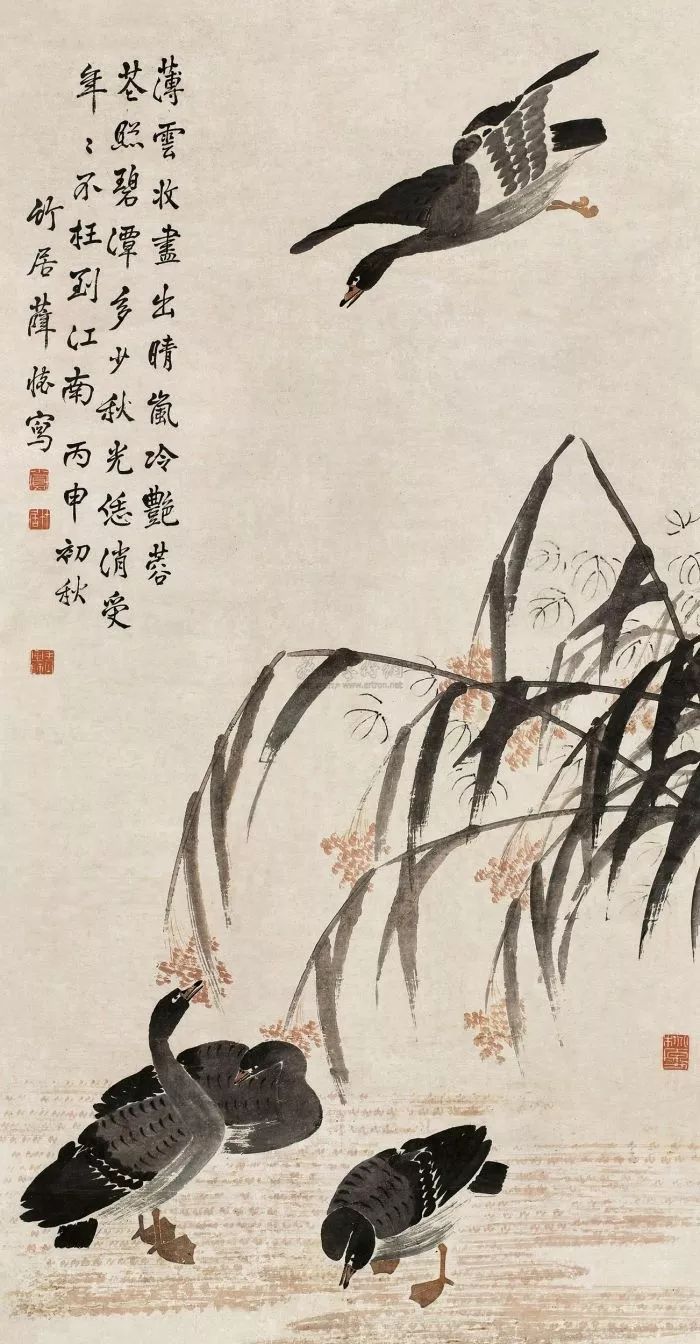 薄雲收盡出晴嵐冷艷蓉
花照碧潭多少秋光恁消受
年〻不枉到江南 丙申初秋
竹居薛懷寫
www.artron.net